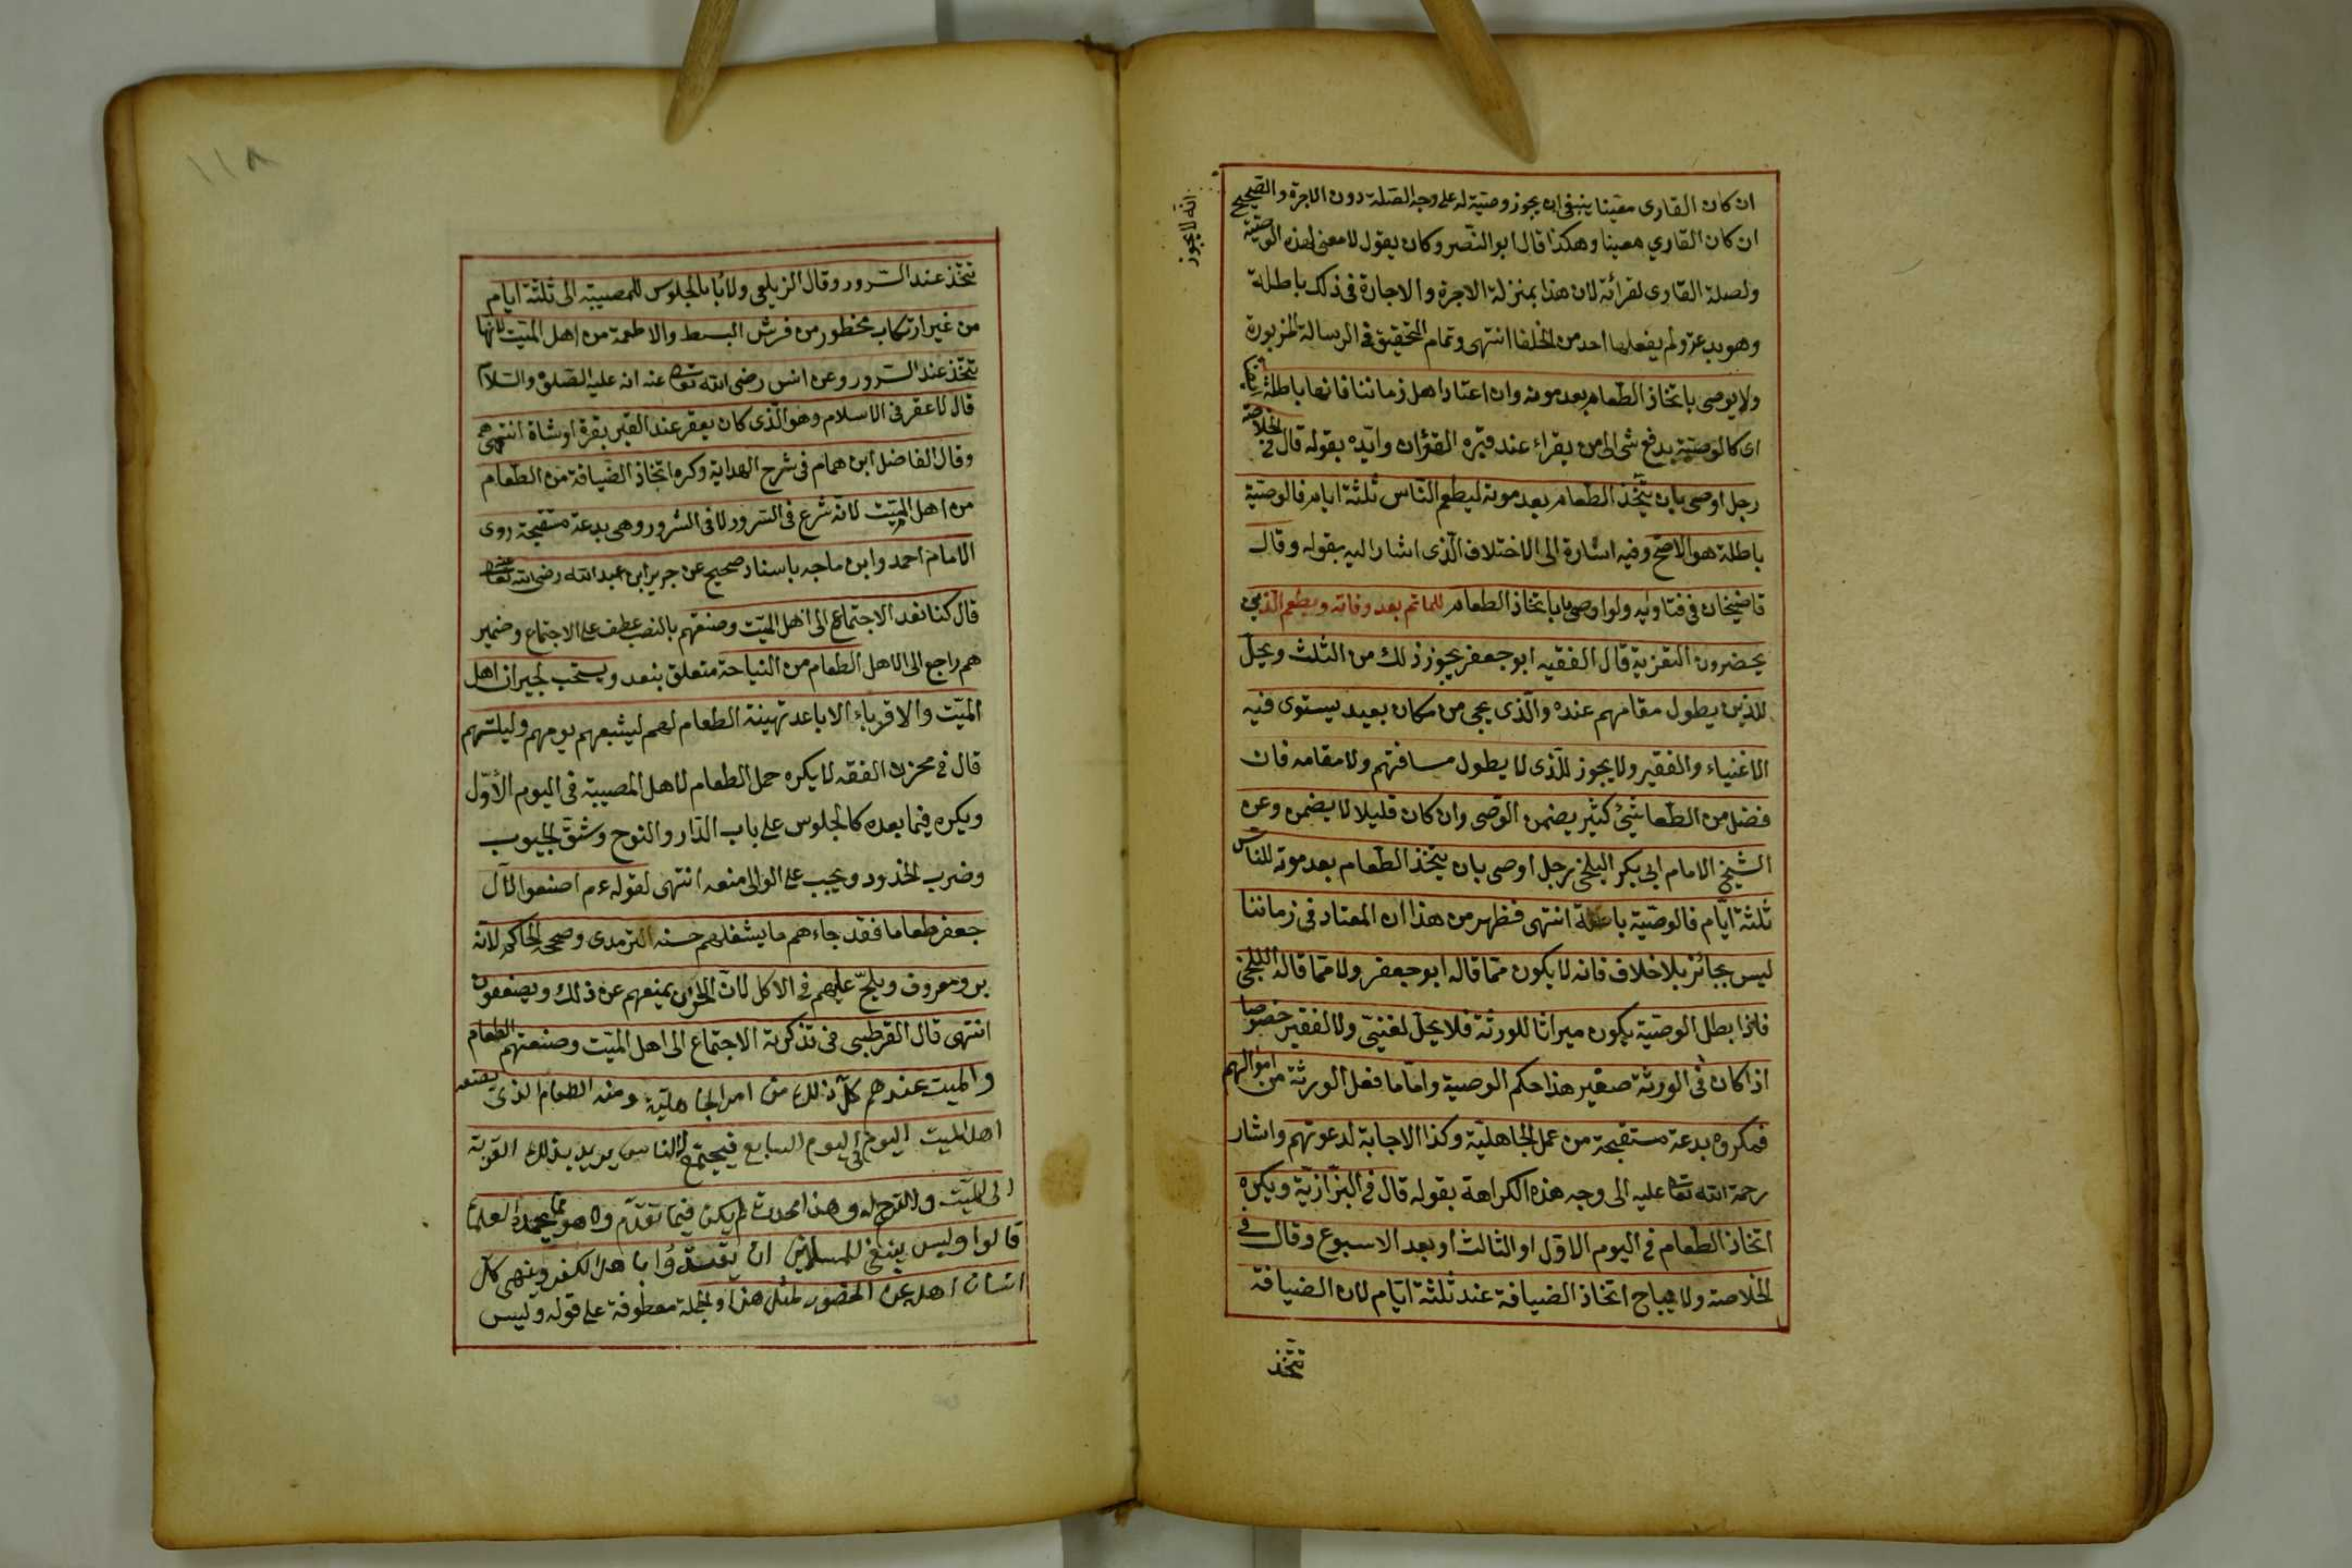 ان كان القارى معينا ينبغى ان يجوز وصيته له على وجه الصلة دون الاجرة والصحيح
انه لا يجوز
ان كان القارى معينا وهكذا قال ابو النصر وكان يقول لا معنى لهذه الوصية
ولصلة القارى لقرائة لان هذا بمنزلة الاجرة والاجارة فى ذلك باطلة
وهو بدعة ولم يفعلها احد من الخلفا انتهى وتمام التحقيق فى الرسالة المزبورة
ولا يوصى باتخاذ الطعام بعد موته وان اعتاد اهل زماننا فانها باطلة
اى كالوصية بدفع شى الى من يقراء عند قبره القؤان وايده بقوله قال فى الخلاصة
رجل اوصى بان يتخذ الطعام بعد موته ليطعم الناس ثلثة ايام فالوصية
باطلة هو الاصح وفيه اشارة الى الاختلاف الذى اشار اليه بقوله وقال
قاضيخان فى فتاويه ولو اوصى باباتخاذ الطعام للماتم بعد وفاته ويطعم الذين
يحضرون التعزية قال الفقيه ابو جعفر يجوز ذلك من الثلث ويحل
للذين يطول مقامهم عنده والذى يجى من مكان بعيد يستوى فيه
الاغنياء والفقير ولا يجوز للذى لا يطول مسافتهم ولا مقامه فان
فضل من الطعا شيئ كثير يضمن الوصى وان كان قليلا لا يضمن وعن
الشيخ الامام ابى بكر البلخى رجل اوصى بان يتخذ الطعام بعد موته للناس
ثلثة ايام فالوصية باطلة انتهى فظهر من هذا ان المعتاد فى زماننا
ليس بجائز بلا خلاف فانه لا يكون مما قاله ابو جعفر ولا مما قاله البلخى
فاذا بطل الوصية يكون ميراثا للورثة فلا يحل لغنيى ولا لفقير خصوصا
اذا كان فى الورثة صغير هذا حكم الوصية واما ما فعل الورثة من اموالهم
فمكروه بدعة مستقبحة من عمل الجاهلية وكذا الاجابة لدعوتهم واشار
رحمة الله تعالى عليه الى وجه هذه الكراهة بقوله قال فى البزازية ويكره
اتخاذ الطعام فى اليوم الاول او الثالث او بعد الاسبوع وقال فى
الخلاصة ولا يباح اتخاذ الضيافة عند ثلثة ايام لان الضيافة
تتخذ
١١٨
تتخذ عند السرور وقال الزيلعى ولا بأبالجلوس للمصيبة الى ثلثة ايام
من غير ارتكاب محظور من فرش البسط والاطعمة من اهل الميت لانها
تتخذ عند السرور وعن انس رضى الله تعالى عنه انه عليه الصلوة والسلام
قال لا عقر فى الاسلام وهو الذى كان يعقر عند القبر بقرة او شاة انتهى
وقال الفاضل ابن همام فى شرح الهداية وكره اتخاذ الضيافة من الطعام
من اهل الميت لانه شرع فى السرور لا فى الشرور وهى بدعة مستقبحة روى
الامام احمد وابن ماجه باسناد صحيح عن جرير ابن عبد الله رضى الله تعالى عنه
قال كنا نعد الاجتماع الى اهل الميت وصنعهم بالنصب عطف على الاجتماع وضمير
هم راجع الى الاهل الطعام من النياحة متعلق بنعد ويستحب لجيران اهل
الميت والاقرباء الاباعد تهيئة الطعام لهم ليشبعهم يومهم وليلتهم
قال فى مخزن الفقه لا يكره حمل الطعام لاهل المصيبة فى اليوم الاول
ويكره فيما بعده كالجلوس على باب الدار والنوح وشق الجيوب
وضرب الخدود ويجب على الوالى منعه انتهى لقوله عم اصنعوا لآل
جعفر طعاما فقد جاءهم ما يشغلهم حسنه الترمدى وصححه الحاكم لانه
بر ومعروف ويلح عليهم فى الاكل لان الحزن يمنعهم عن ذلك ويضعفون
انتهى قال القرطبى فى تذكرته الاجتماع الى اهل الميت وصنعتهم الطعام
والمبيت عندهم كل ذلك من امر الجاهلية ومنه الطعام الذى يصنعه
اهل الميت اليوم فى اليوم السابع فيجتمع الناس يريد بذلك القربة
الى الميت والترحم له وهذا محدث لم يكن فيما تقدم ولا هو مما يحمده العلما
قالوا وليس ينبغى للمسلمين ان يقتدوا باهل الكفر وينهى كل
انسان اهله عن الحضور لمثل هذا والجملة معطوفة على قوله وليس